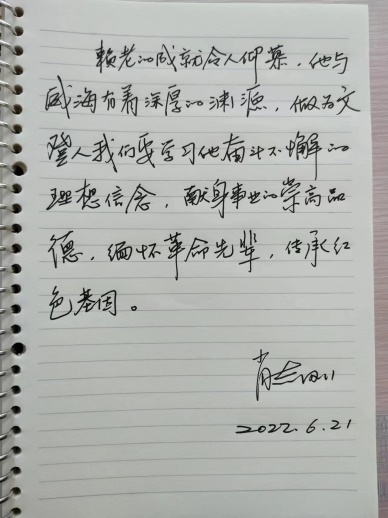 赖老的成就令人仰慕，他与
威海有着深厚的渊源，做为文
登人我们要学习他奋斗不懈的
理想信念，献身事业的崇高品
德，缅怀革命先辈，传承红
色基因。
肖志刚
2022.6.21